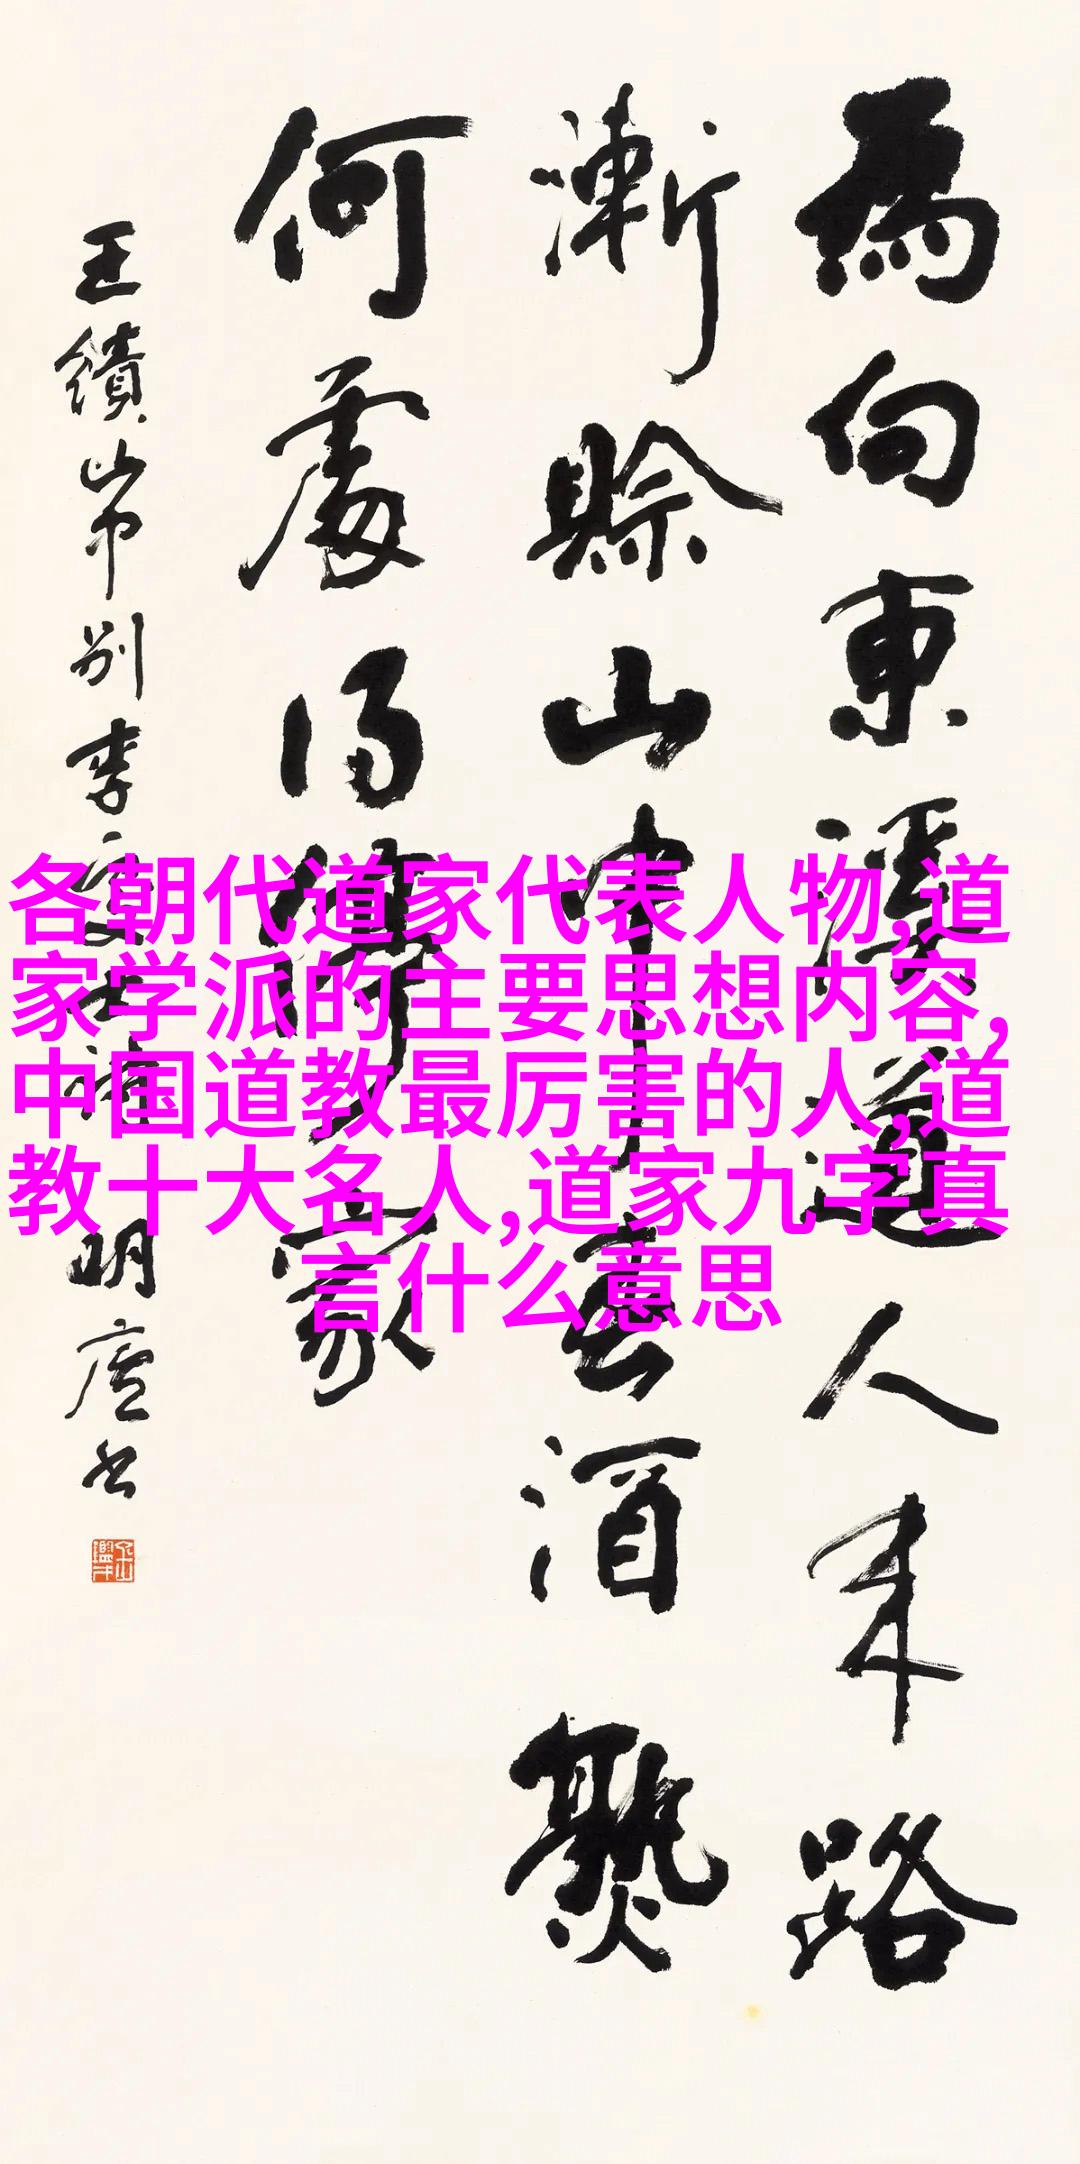 為向東溪道人來路
漸賒山中春酒熟
何處得停家
王績山中別李處士詩 明廬書
各朝代道家代表人物,道
家学派的主要思想内容,
中国道教最厉害的人,道
教十大名人,道家九字真
言什么意思